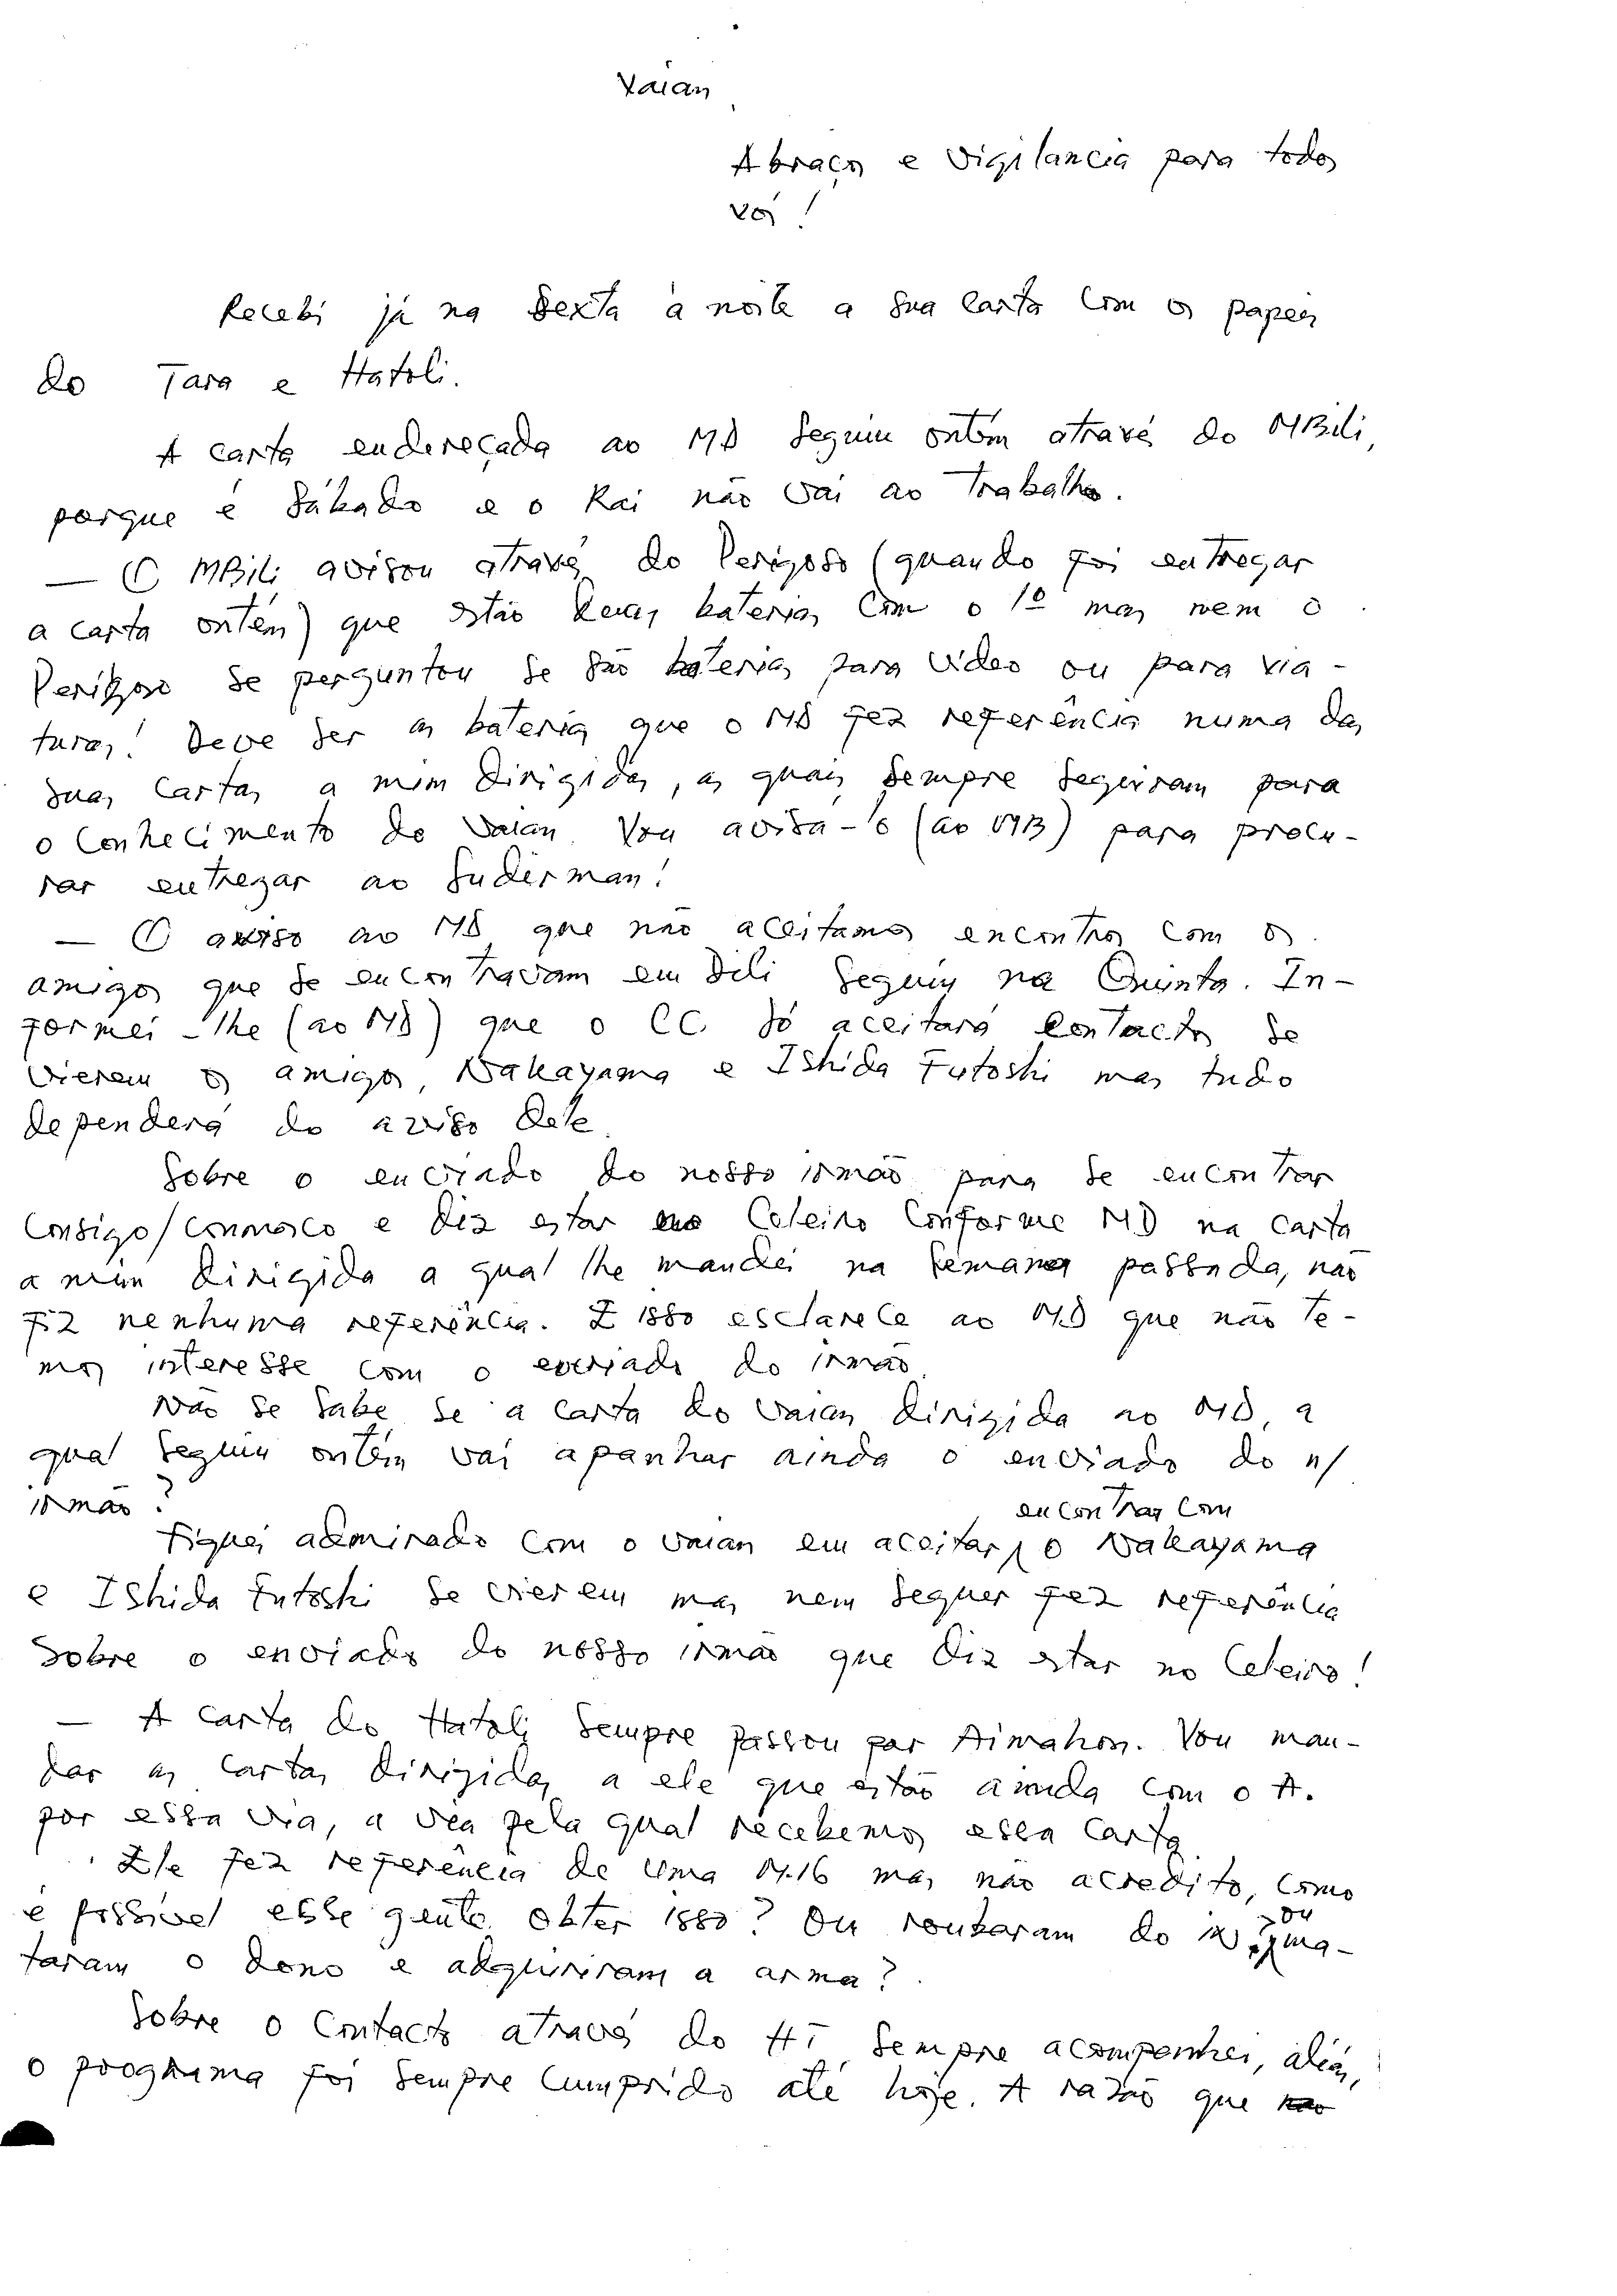 Vaian
Abraços e Vigilancia para todos
vós !
Recebi já na Sexta à noite a sua carta com os papeis
do Tara e Hatoli.
A carta endereçada ao MD seguiu ontem através do MBili,
porque é Sábado e o Kai não vai ao Trabalho.
— O MBili avisou através do Perigoso (quando foi entregar
a carta ontem) que estão duas baterias com o 1º mas nem o
Perigoso se perguntou se são baterias para vídeo ou para via-
turas! Deve ser as baterias que o MD fez referência numa das
suas cartas a mim dirigidas, as quais sempre seguiram para
o conhecimento do Vaian. Vou avisá-lo (ao MB) para procu-
rar entregar ao Suderman!
— O aviso ao MD que não aceitamos encontros com os
amigos que se encontravam em Dili seguiu na Quinta. In-
formei-lhe (ao MD) que o CC só aceitará contactos se
vierem os amigos, Nakayama e Ishida Futoshi mas tudo
dependerá do aviso dele.
Sobre o enviado do nosso irmão para se encontrar
consigo/connosco e diz estar no Celeiro conforme MD na carta
a mim dirigida a qual lhe mandei na semana passada, não
fiz nenhuma referência. E isso esclarece ao MD que não te-
mos interesse com o enviado do irmão.
Não se sabe se a carta do Vaian dirigida ao MD, a
qual seguiu ontem vai apanhar ainda o enviado do n/
irmão?
encontrar com
Fiquei admirado com o Vaian em aceitar o Nakayama
e Ishida Futoshi se vierem mas nem sequer fez referência
sobre o enviado do nosso irmão que diz estar no Celeiro!
— A carta do Hatoli sempre passou por Aimahon. Vou man-
dar as cartas dirigidas a ele que estão ainda com o A.
por essa via, a via pela qual recebemos essa carta.
Ele fez referência de uma M.16 mas não acredito, como
é possível esse gente obter isso? Ou roubaram do
ou
ma-
taram o dono e adquiriram a arma?
Sobre o contacto através do HT sempre acompanhei, aliás,
o programa foi sempre cumprido até hoje. A razão que não